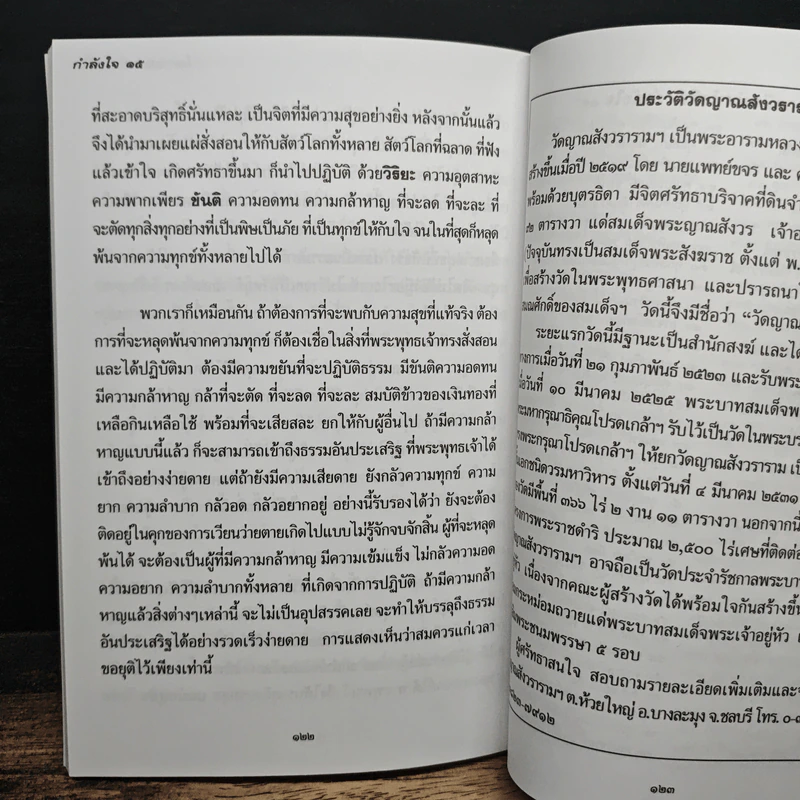 กำลังใจ ๑๕
ที่สะอาดบริสุทธิ์นั่นแหละ เป็นจิตที่มีความสุขอย่างยิ่ง หลังจากนั้นแล้ว
จึงได้นำมาเผยแผ่สั่งสอนให้กับสัตว์โลกทั้งหลาย สัตว์โลกที่ฉลาด ที่ฟัง
แล้วเข้าใจ เกิดศรัทธาขึ้นมา ก็นำไปปฏิบัติ ด้วยวิริยะ ความอุตสาหะ
ความพากเพียร ขันติ ความอดทน ความกล้าหาญ ที่จะลด ที่จะละ ที่
จะตัดทุกสิ่งทุกอย่างที่เป็นพิษเป็นภัย ที่เป็นทุกข์ให้กับใจ จนในที่สุดก็หลุด
พ้นจากความทุกข์ทั้งหลายไปได้
พวกเราก็เหมือนกัน ถ้าต้องการที่จะพบกับความสุขที่แท้จริง ต้อง
การที่จะหลุดพ้นจากความทุกข์ ก็ต้องเชื่อในสิ่งที่พระพุทธเจ้าทรงสั่งสอน
และได้ปฏิบัติมา ต้องมีความขยันที่จะปฏิบัติธรรม มีขันติความอดทน
มีความกล้าหาญ กล้าที่จะตัด ที่จะลด ที่จะละ สมบัติข้าวของเงินทองที่
เหลือกินเหลือใช้ พร้อมที่จะเสียสละ ยกให้กับผู้อื่นไป ถ้ามีความกล้า
หาญแบบนี้แล้ว ก็จะสามารถเข้าถึงธรรมอันประเสริฐ ที่พระพุทธเจ้าได้
เข้าถึงอย่างง่ายดาย แต่ถ้ายังมีความเสียดาย ยังกลัวความทุกข์ ความ
ยาก ความลำบาก กลัวอด กลัวอยากอยู่ อย่างนี้รับรองได้ว่า ยังจะต้อง
ติดอยู่ในคุกของการเวียนว่ายตายเกิดไปแบบไม่รู้จักจบจักสิ้น ผู้ที่จะหลุด
พ้นได้ จะต้องเป็นผู้ที่มีความกล้าหาญ มีความเข้มแข็ง ไม่กลัวความอด
ความอยาก ความลำบากทั้งหลาย ที่เกิดจากการปฏิบัติ ถ้ามีความกล้า
หาญแล้วสิ่งต่างๆเหล่านี้ จะไม่เป็นอุปสรรคเลย จะทำให้บรรลุถึงธรรม
อันประเสริฐได้อย่างรวดเร็วง่ายดาย การแสดงเห็นว่าสมควรแก่เวลา
ขอยุติไว้เพียงเท่านี้
๑๒๒
ประวัติวัดญาณสังวราราม
วัดญาณสังวรารามฯ เป็นพระอารามหลวง
สร้างขึ้นเมื่อปี ๒๕๑๙ โดย นายแพทย์ขจร และ
พร้อมด้วยบุตรธิดา มีจิตศรัทธาบริจาคที่ดิน
ตารางวา แด่สมเด็จพระญาณสังวร
ปัจจุบันทรงเป็นสมเด็จพระสังฆราช ตั้งแต่ พ.
เพื่อสร้างวัดในพระพุทธศาสนา และปรารถนา
สมณศักดิ์ของสมเด็จฯ วัดนี้จึงมีชื่อว่า “วัดญาณ
ระยะแรกวัดนี้มีฐานะเป็นสำนักสงฆ์ และได้
ทางการเมื่อวันที่ ๒๑ กุมภาพันธ์ ๒๕๒๓ และรับพระ
เมื่อวันที่ ๑๐ มีนาคม ๒๕๒๕ พระบาทสมเด็จพระ
ทรงพระมหากรุณาธิคุณโปรดเกล้าฯ รับไว้เป็นวัดในพระบรม
ทรงพระกรุณาโปรดเกล้าฯ ให้ยกวัดญาณสังวราราม
เอกชนิดวรมหาวิหาร ตั้งแต่วันที่ ๔ มีนาคม ๒๕๓๑
วัดมีพื้นที่ ๓๖๖ ไร่ ๒ งาน ๑๑ ตารางวา นอกจากนี้
โครงการพระราชดำริ ประมาณ ๒,๕๐๐ ไร่เศษที่ติดต่อ
ญาณสังวรารามฯ อาจถือเป็นวัดประจำรัชกาลพระบาท
เนื่องจากคณะผู้สร้างวัดได้พร้อมใจกันสร้างขึ้น
กระหม่อมถวายแด่พระบาทสมเด็จพระเจ้าอยู่หัว
พระชนมพรรษา ๕ รอบ
ผู้ศรัทธาสนใจ สอบถามรายละเอียดเพิ่มเติมและ
ญาณสังวรารามฯ ต.ห้วยใหญ่ อ.บางละมุง จ.ชลบุรี โทร.
๗๙๑๒
๑๒๓